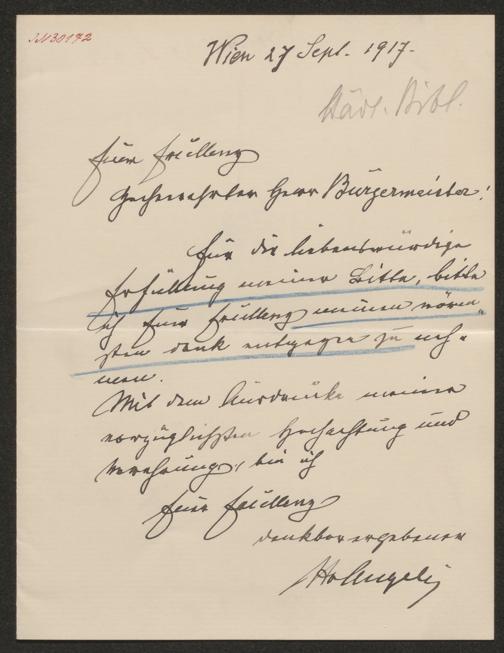 IN 30172
Wien 27 Sept. 1917.
Städt. Bibl.
Euer Exzellenz
Hochverehrter Herr Bürgermeister!
Für die liebenswürdige
Erfüllung meiner Bitte, bitte
ich Euer Exzellenz meinen wärm-
sten Dank entgegen zu neh-
men.
Mit dem Ausdrucke meiner
vorzüglichsten Hochachtung und
Verehrung, bin ich
Euer Exzellenz
dankbar ergebener
HvAngeli